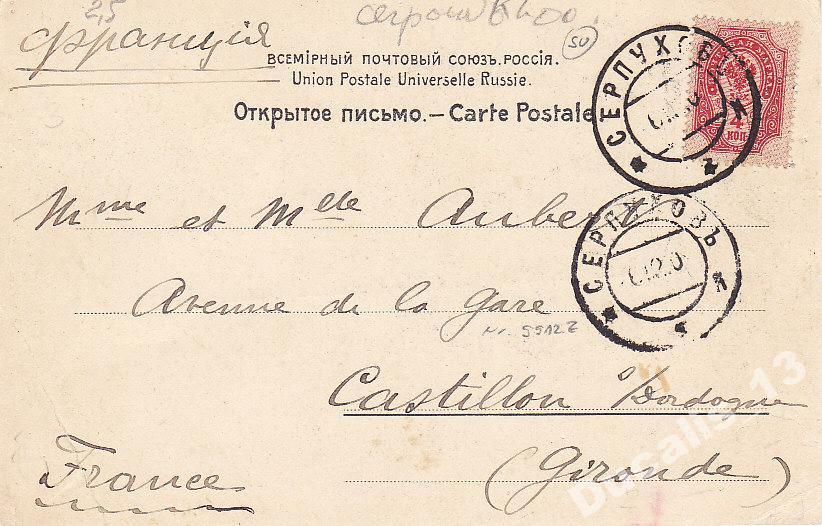 2,5
Франція
50
ВСЕМІРНЫЙ ПОЧТОВЫЙ СОЮЗЪ. РОССІЯ.
Union Postale Universelle Russie.
Открытое письмо. — Carte Postale
СЕРПУХОВЪ
4
КОП
Mme et Mlle Aubert
СЕРПУХОВЪ
Avenue de la Gare
Nr. 5912Z
Castillon s/Dordogne
France
(Gironde)
Ducalis_13